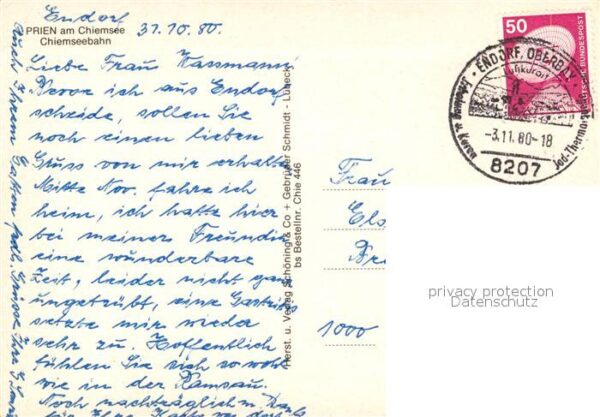 Endorf
31.10.80.
PRIEN am Chiemsee
Chiemseebahn
Liebe Frau Wassmann!
Bevor ich aus Endorf
scheide, sollen Sie
noch einen lieben
Gruss von mir erhalten
Mitte Nov. fahre ich
heim, ich hatte hier
bei meiner Freundin
eine wunderbare
Zeit, leider nicht ganz
ungetrübt, eine Gastritis
setzte mir wieder
sehr zu. Hoffentlich
fühlen Sie sich so wohl
wie in der Ramsau.
Noch nachträglich m. Dank
für Ihre Karte von dort
Auch Ihrem Gatten frdl. Grüsse Ihre
Herst. u. Verlag Schöning & Co + Gebrüder Schmidt - Lübeck
bs Bestellnr. Chie 446
Frau
Els
Br
1000
50
DEUTSCHE BUNDESPOST
ENDORF, OBERBAY
Luftkurort
-3.11.80-18
Jod-Thermal
8207
privacy protection
Datenschutz